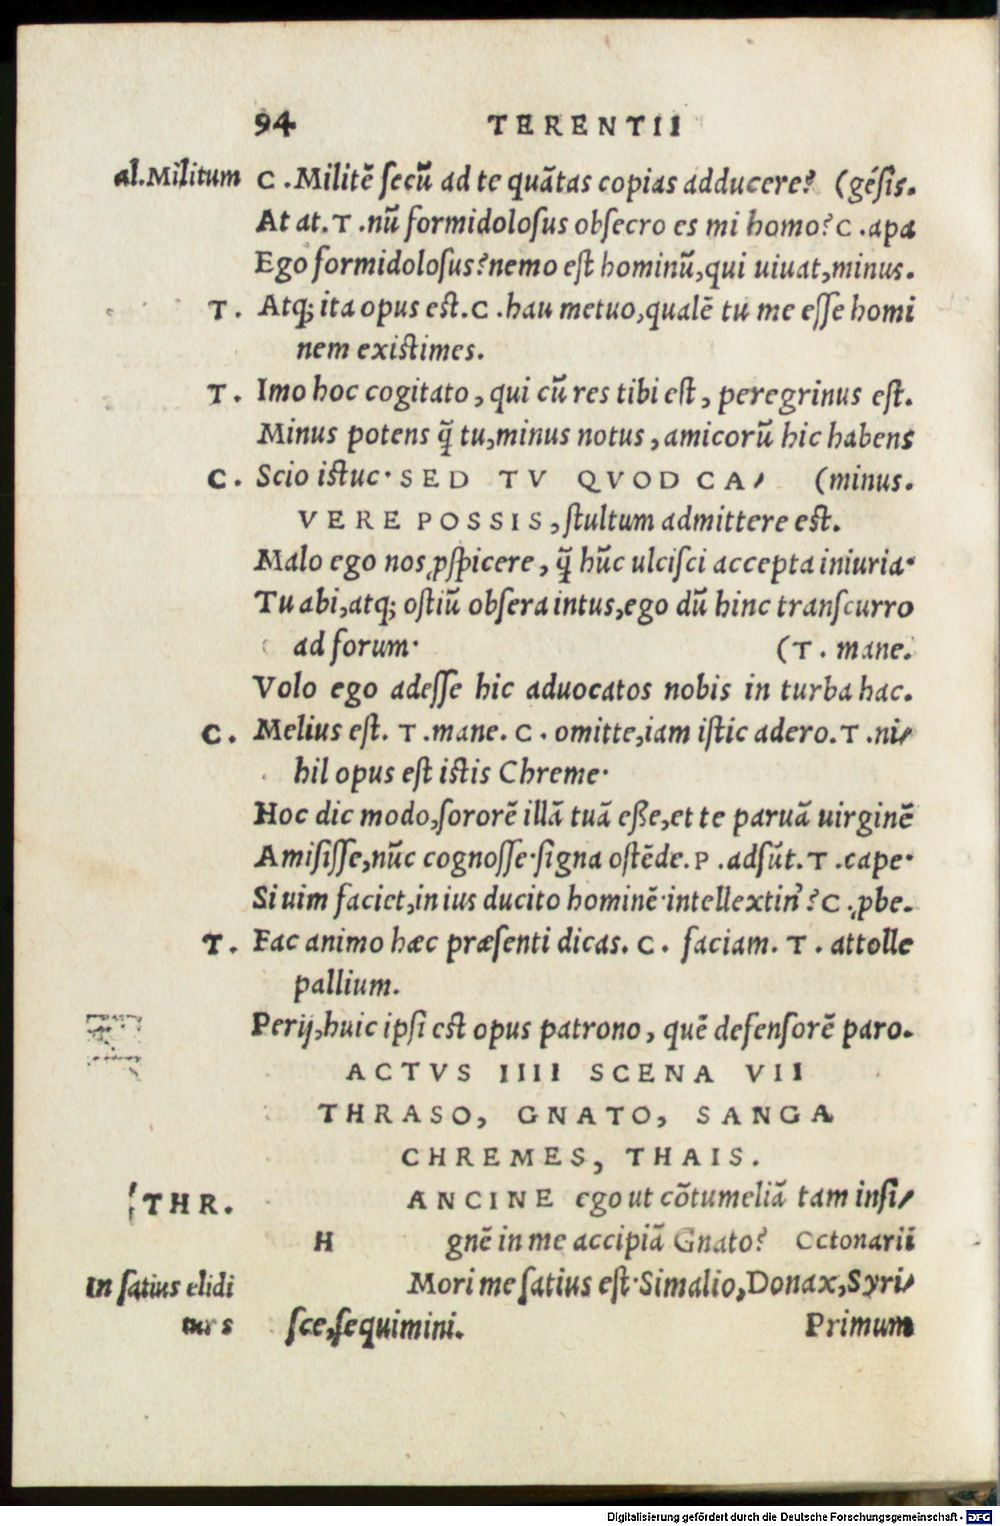 94 TERENTII
al.Militum C .Militē ſecū ad te quātas copias adducere? (géſis.
At at. T .nū formidoloſus obſecro es mi homo? C .apa
Ego formidoloſus? nemo eſt hominū,qui uiuat,minus.
T. Atq; ita opus eſt. C .hau metuo,qualē tu me eſſe homi
nem exiſtimes.
T. Imo hoc cogitato, qui cū res tibi eſt, peregrinus eſt.
Minus potens q̃ tu,minus notus, amicorū hic habens
C. Scio iſtuc· SED TV QVOD CA⸗ (minus.
VERE POSSIS, ſtultum admittere eſt.
Malo ego nos ꝓſpicere, q̃ hūc ulciſci accepta iniuria·
Tu abi,atq; oſtiū obſera intus,ego dū hinc tranſcurro
ad forum· (T. mane.
Volo ego adeſſe hic aduocatos nobis in turba hac.
C. Melius eſt. T .mane. C . omitte,iam iſtic adero. T .ni⸗
hil opus eſt iſtis Chreme·
Hoc dic modo,ſororē illā tuā eße,et te paruā uirginē
Amiſiſſe,nūc cognoſſe·ſigna oſtēde. P .adſūt. T .cape·
Si uim faciet,in ius ducito hominē·intellextin'? C .ꝓbe.
T. Fac animo hæc præſenti dicas. C . faciam. T . attolle
pallium.
Perij,huic ipſi eſt opus patrono, quē defenſorē paro.
ACTVS IIII SCENA VII
THRASO, GNATO, SANGA
CHREMES, THAIS.
THR. ANCINE ego ut cōtumeliā tam inſi⸗
H gnē in me accipiā Gnato? Octonarii
In ſatius elidi Mori me ſatius eſt·Simalio,Donax,Syri⸗
tur s ſce,ſequimini. Primum
Digitalisierung gefördert durch die Deutsche Forschungsgemeinschaft - DFG